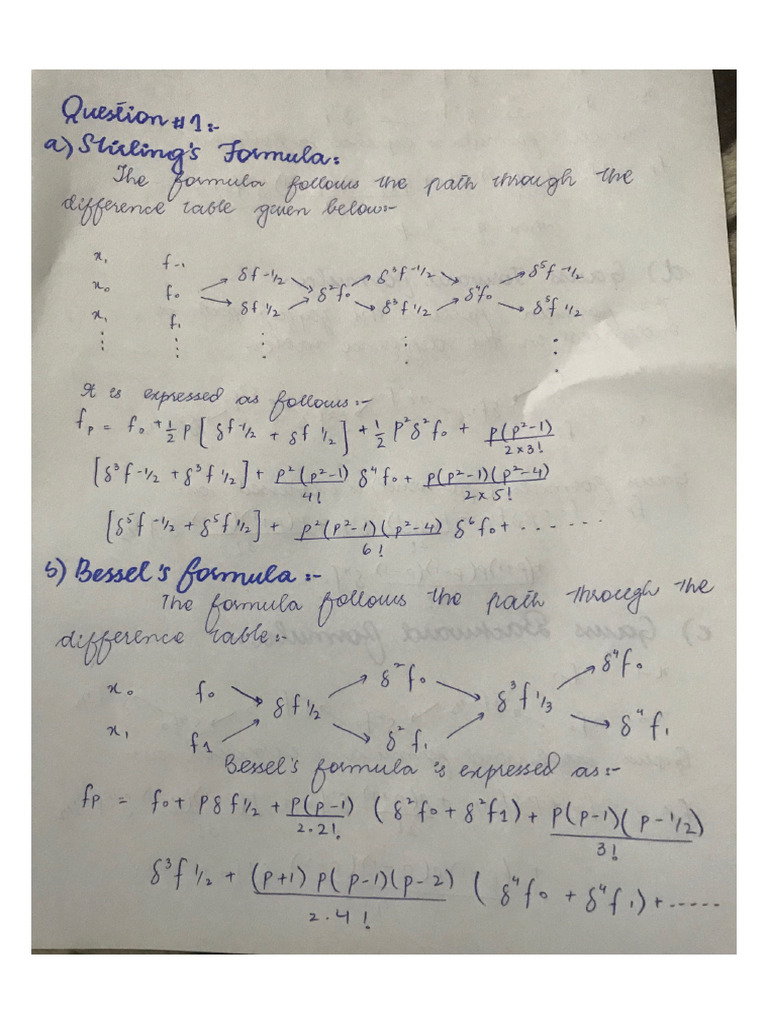 Question #1:-
a) Stirling's Formula:
The formula follows the path through the
difference table given below:-
x₁ f₋₁ δf-1/2 δ³f-1/2 δ⁵f-1/2
x₀ f₀ δ²f₀ δ⁴f₀
x₁ f₁ δf 1/2 δ³f 1/2 δ⁵f 1/2
It is expressed as follows:-
fₚ = f₀ + 1/2 p [δf-1/2 + δf 1/2] + 1/2 p²δ²f₀ + p(p²-1)/2×3!
[δ³f-1/2 + δ³f 1/2] + p²(p²-1)/4! δ⁴f₀ + p(p²-1)(p²-4)/2×5!
[δ⁵f-1/2 + δ⁵f 1/2] + p²(p²-1)(p²-4)/6! δ⁶f₀ + ......
b) Bessel's formula:-
The formula follows the path through the
difference table:-
x₀ f₀ δf 1/2 δ²f₀ δ³f 1/3 δ⁴f₀
x₁ f1 δ²f₁ δ⁴f₁
Bessel's formula is expressed as:-
fp = f₀ + pδf 1/2 + p(p-1)/2.2!. (δ²f₀ + δ²f1) + p(p-1)(p-1/2)/3!
δ³f 1/2 + (p+1)p(p-1)(p-2)/2.4! (δ⁴f₀ + δ⁴f₁) + ......